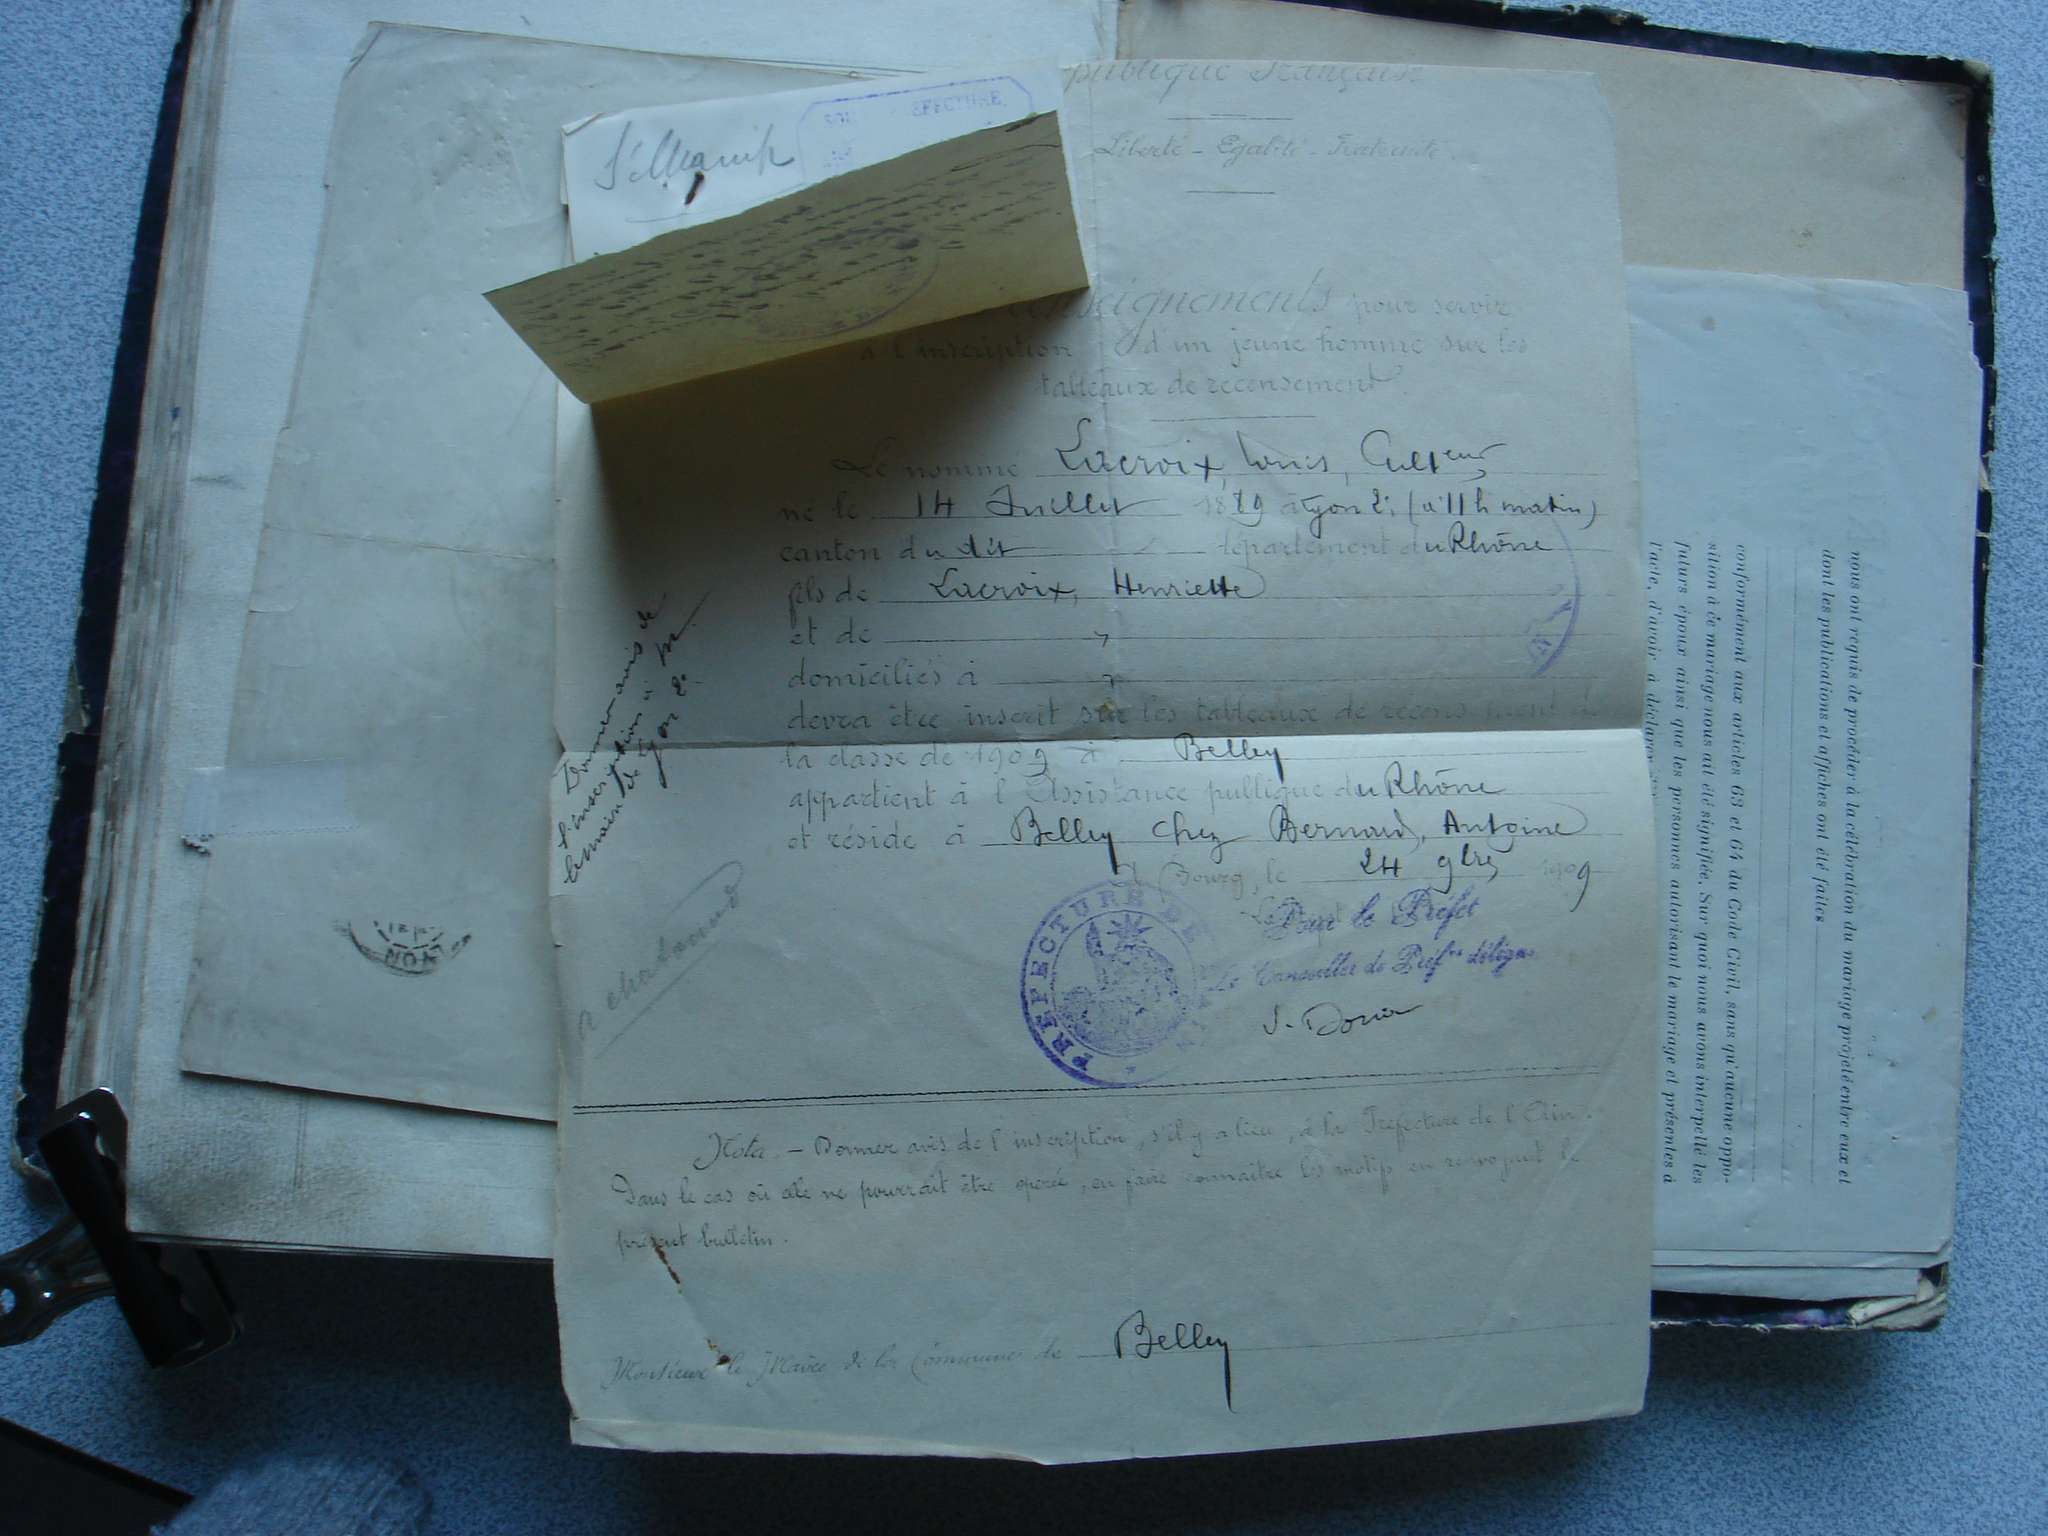 publique Française
Liberté - Egalité - Fraternité.
SOU EFECTURE
seignements pour servir
à l'inscription d'un jeune homme sur les
tableaux de recensement.
Le nommé Lacroix, Louis, Cult eur
né le 14 Juillet 1889 à Lyon 2e (à 11 h matin)
canton du dit département du Rhône
fils de Lacroix, Henriette
et de "
domiciliés à "
devra être inscrit sur les tableaux de recensement de
la classe de 1909 à Belley
appartient à l'Assistance publique du Rhône
et réside à Belley chez Bernard, Antoine
A Bourg, le 24 9bre 1909
Pour le Préfet
Le Conseiller de Préf re délégué
PREFECTURE DE L'AIN
Donner avis de
l'inscription à M.
le Maire de Lyon 2e
Nota. - Donner avis de l'inscription, s'il y a lieu, à la Préfecture de l'Ain.
Dans le cas où elle ne pourrait être opérée, en faire connaître les motifs en renvoyant le
présent bulletin.
Monsieur le Maire de la Commune de Belley
LYON
nous ont requis de procéder à la célébration du mariage projeté entre eux et
dont les publications et affiches ont été faites
conformément aux articles 63 et 64 du Code Civil, sans qu'aucune oppo-
sition à ce mariage nous ait été signifiée. Sur quoi nous avons interpellé les
futurs époux ainsi que les personnes autorisant le mariage et présentes à
l'acte, d'avoir à déclarer